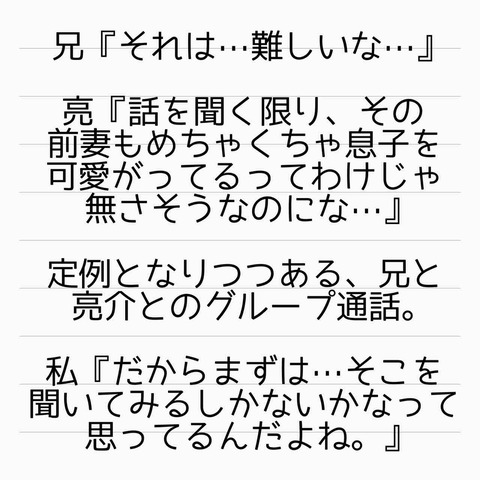 兄『それは…難しいな…』
亮『話を聞く限り、その
前妻もめちゃくちゃ息子を
可愛がってるってわけじゃ
無さそうなのにな…』
定例となりつつある、兄と
亮介とのグループ通話。
私『だからまずは…そこを
聞いてみるしかないかなって
思ってるんだよね。』